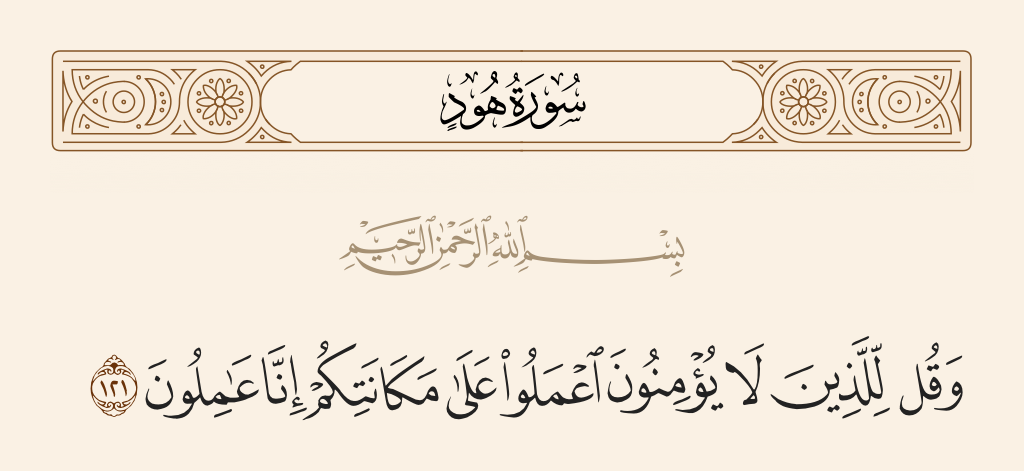 سُورَةُ هُودٍ
بِسْمِ ٱللَّهِ ٱلرَّحْمَٰنِ ٱلرَّحِيمِ
وَقُل لِّلَّذِينَ لَا يُؤْمِنُونَ ٱعْمَلُوا۟ عَلَىٰ مَكَانَتِكُمْ إِنَّا عَٰمِلُونَ ١٢١